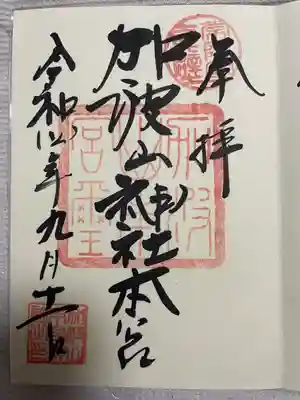 奉拝
加波山神社本宮
令和四年九月十一日